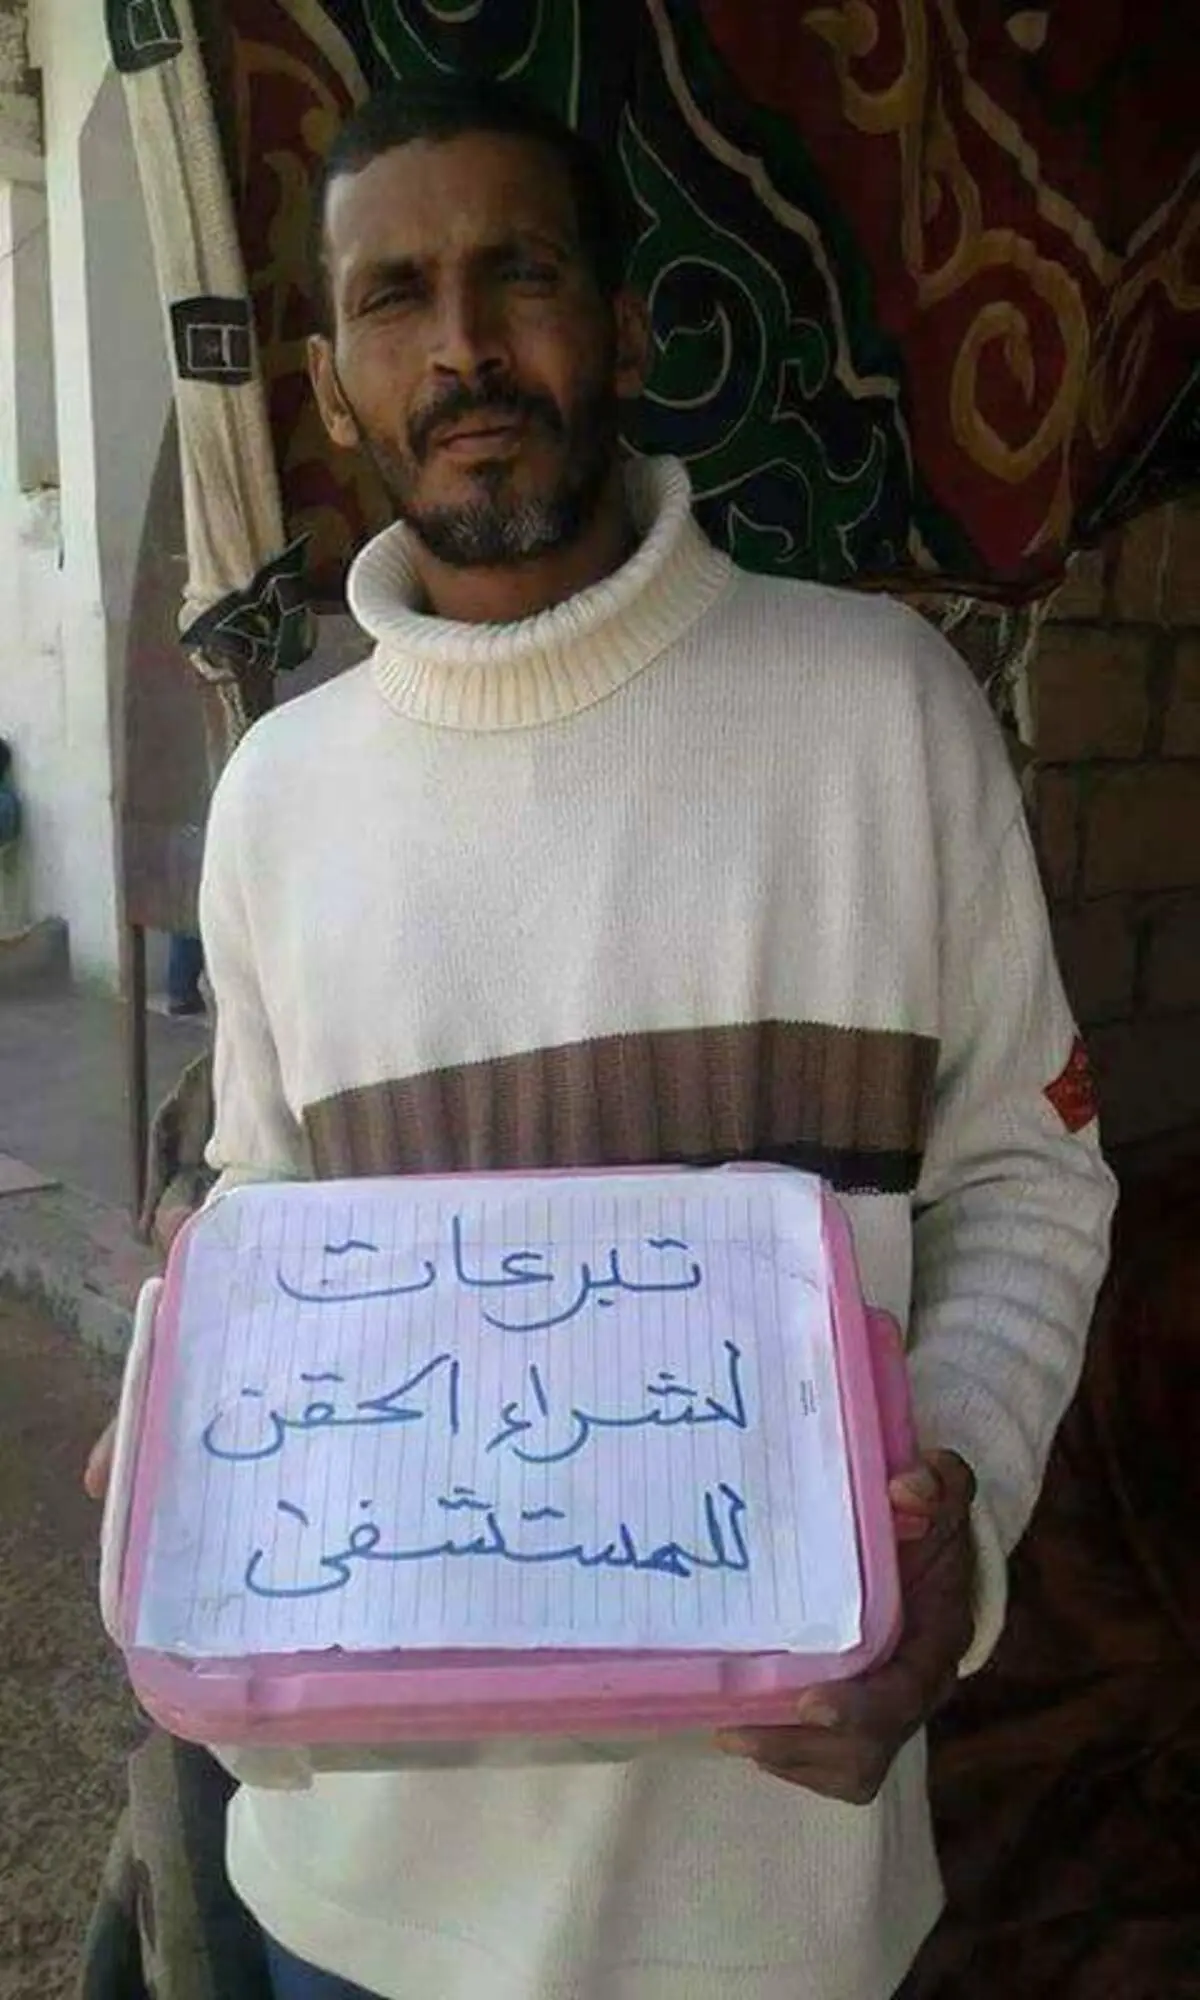 تبرعات
لشراء الحقن
للمستشفى